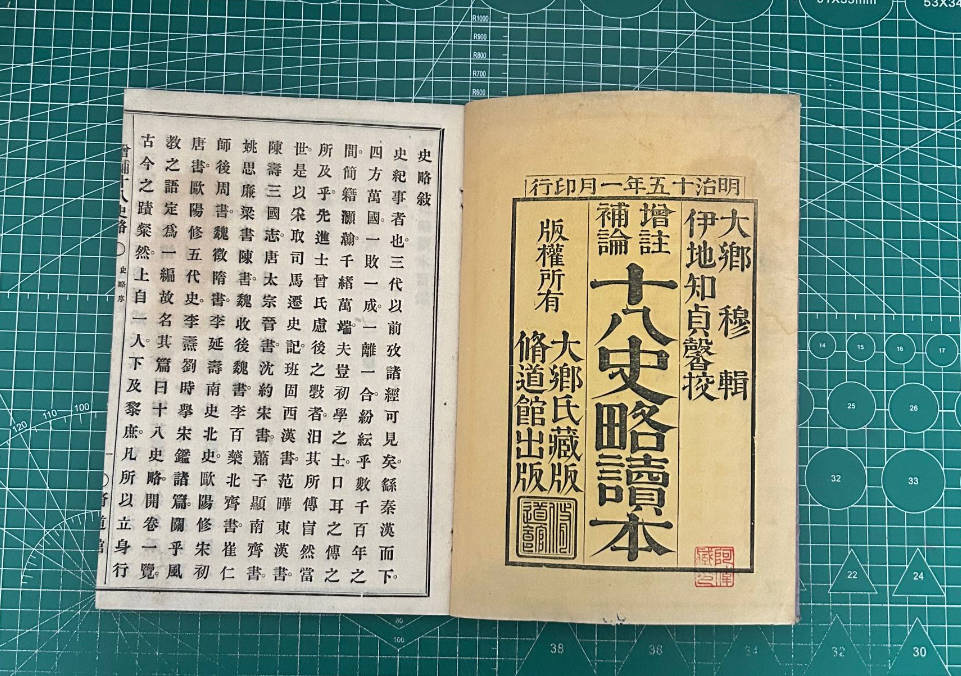 明治十五年一月印行
大鄉 穆 輯
伊地知貞馨校
增註
補論
十八史略讀本
版權所有
大鄉氏藏版
脩道館出版
脩道館
史略敘
史紀事者也。三代以前攷諸經可見矣。繇秦漢而下。
四方萬國一敗一成一離一合紛紜乎數千百年之
間簡籍灝瀚千緒萬端夫豈初學之士口耳之傳之
所及乎。先進士曾氏慮後之斆者。汨其所傳盲然當
世是以采取司馬遷史記班固西漢書。范曄東漢書。
陳壽三國志。唐太宗晉書。沈約宋書。蕭子顯南齊書。
姚思廉梁書。陳書。魏收後魏書。李百藥北齊書。崔仁
師後周書。魏徵隋書。李延壽南史。北史。歐陽修宋初
唐書。歐陽修五代史。李燾劉時擧宋鑑諸篇。關乎風
教之語定爲一編故名其篇曰十八史略開卷一覽
古今之蹟粲然上自一人下及黎庶。凡所以立身行
史略序
一
R1000
R900
R800
R700
R600
53X34
120
110
100
80
100
14
15
16
17
25
26
32
33
22
24
38
36
34
32
30